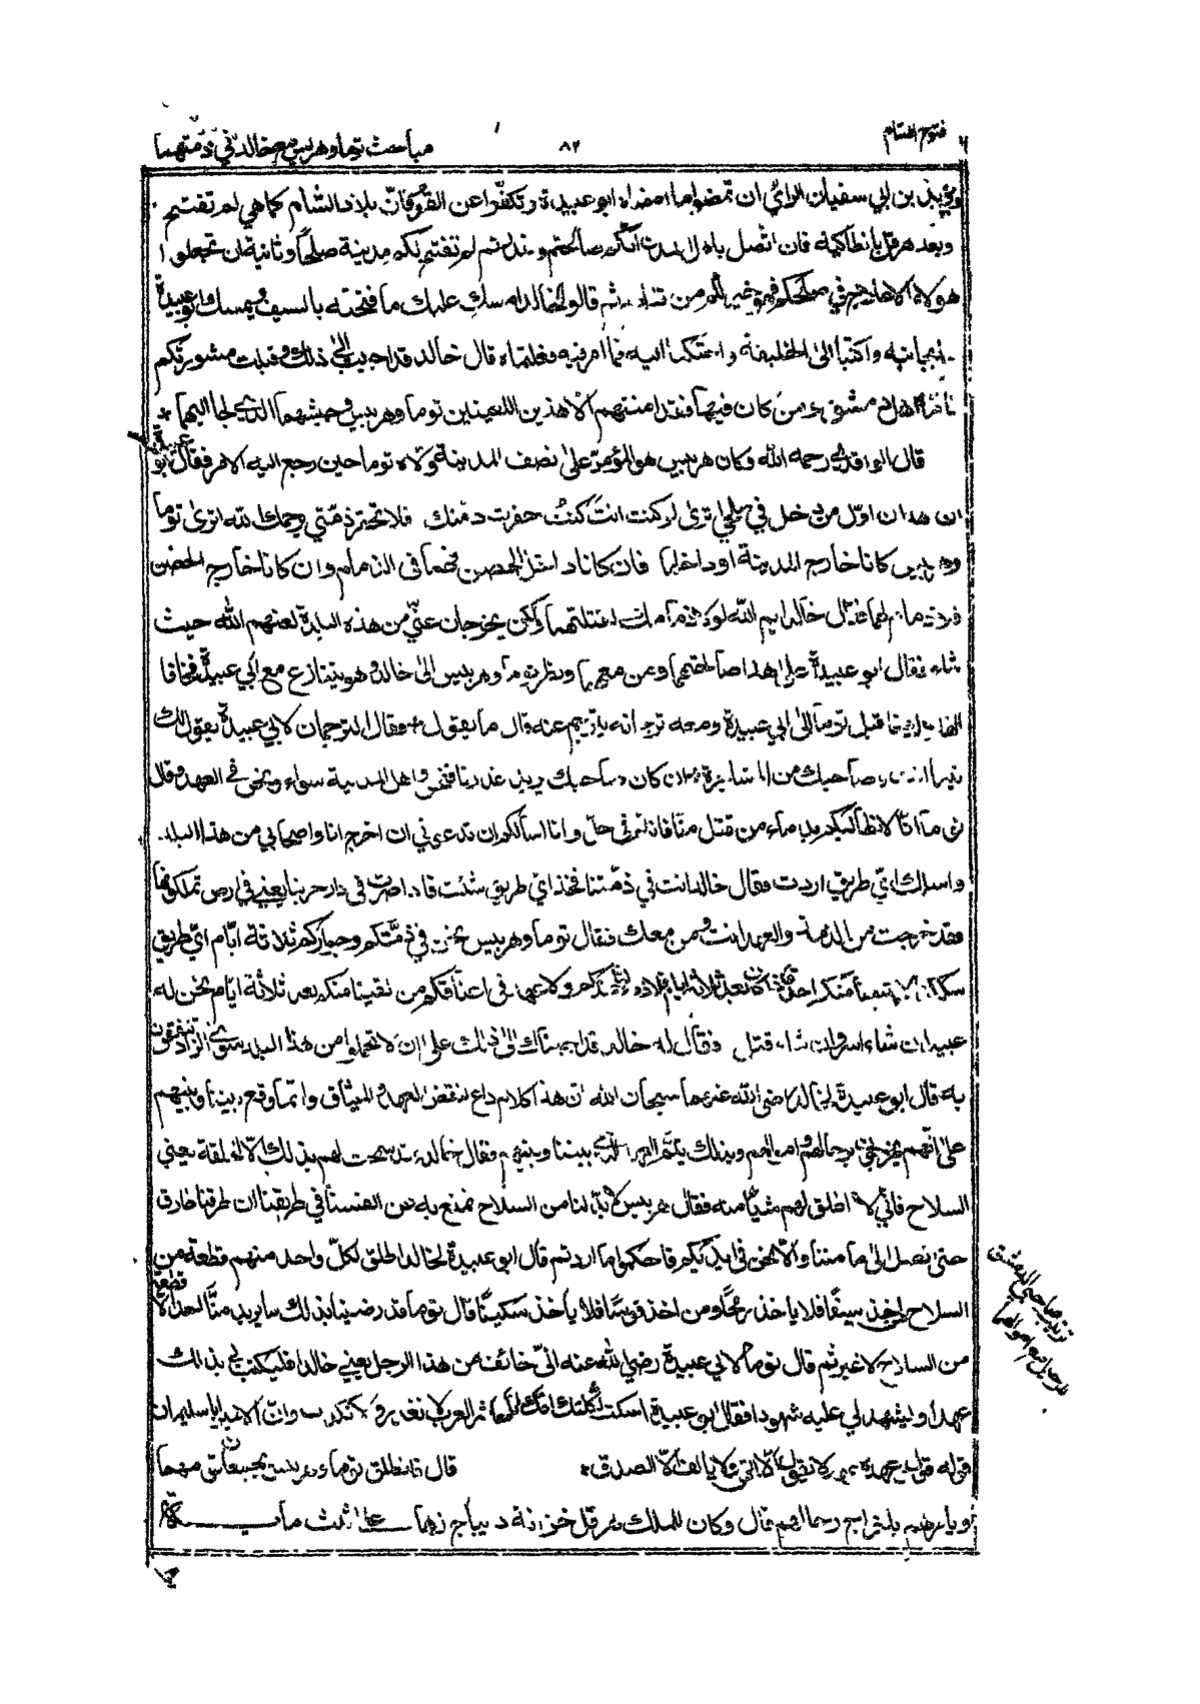 فتوح الشام
٨٢
مباحث توما وهربيس مع خالد في ذمتهما
ويزيد بن ابي سفيان الرأي ان تمضوا ما امضاه ابو عبيدة وتكفوا عن القوم فان بلاد الشام كما هي لم تفتح
وبعد هرقل بانطاكية فان اتصل باهل المدن انكم صالحتم وغدرتم لم تفتح لكم مدينة صلحا وثانية ان تجعلوا
هولاء الاعلاج في صلحكم فهو خير لكم من ثم قالوا لخالد امسك عليك ما فتحته بالسيف ويمسك ابو عبيدة
بجانبه واكتبا الى الخليفة واحتكما اليه فما امر فيه فعلتماه قال خالد قد اجيب الى ذلك وقبلت مشورتكم
فاما اهل دمشق ومن كان فيها فقد امنتهم الا هذين اللعينين توما وهربيس وجيشهما الذي لجا اليهما *
قال الواقدي رحمه الله وكان هربيس هو المؤمر على نصف المدينة ولاه توما حين رجع اليه الامر فقال ابو عبيدة
ان هذان اول من دخل في صلحي اترى لو كنت انت كنت خفرت ذمتك فلا تحقر ذمتي رحمك الله اترى توما
وهربيس كانا خارج المدينة او داخلها فان كانا داخل الحصن فهما في الذمام وان كانا خارج الحصن
فلا ذمام لهما فقال خالد ايم الله لولا ذمامك لقتلتهما ولكن يخرجان عني من هذه البلدة لعنهم الله حيث
شاء فقال ابو عبيدة على هذا صالحتهما ومن معهما ونظر توما وهربيس الى خالد وهو يتنازع مع ابي عبيدة فخافا
الهلاك فاقبل توما الى ابي عبيدة ومعه ترجمانه يترجم عنه قال ما يقول + فقال الترجمان لابي عبيدة يقول لك
فيما انت وصاحبك من المشاجرة ان كان صاحبك يريد غدرنا فنحن واهل المدينة سواء ونحن في العهد وقال
توما انا لا نطالبكم بدماء من قتل منا فانتم في حل وانا اسالكم ان تدعوني ان اخرج انا واصحابي من هذا البلد
واسلك اي طريق اردت فقال خالد انت في ذمتنا فخذ اي طريق شئت فاذا صرت في دار حربنا يعني في ارض تملكونها
فقد خرجت من الذمة والعهد انت ومن معك فقال توما وهربيس نحن في ذمتكم وجواركم ثلاثة ايام اي طريق
سلكنا لا يتبعنا منكم احد فاذا كان بعد ثلاثة ايام فلا ذمة لنا عندكم ولا عهد في اعناقكم من لقينا منكم بعد ثلاثة ايام نحن له
عبيد ان شاء اسر وان شاء قتل فقال له خالد قد اجبناك الى ذلك على ان لا تحملوا من هذا البلد سوى الزاد تتقوتون
به قال ابو عبيدة لخالد رضي الله عنهما سبحان الله ان هذا كلام داع لنقض العهد والميثاق وانما وقع بيننا وبينهم
على انهم يخرجون برحالهم واموالهم وبذلك يتم العهد الذي بيننا وبينهم فقال خالد قد سمحت لهم بذلك الا الحلقة يعني
السلاح فاني لا اطلق لهم شيئا منه فقال هربيس لا بد لنا من السلاح نمنع به عن انفسنا في طريقنا ان طرقنا طارق
حتى نصل الى ما مننا والا فنحن في ايديكم فاحكموا ما اردتم قال ابو عبيدة لخالد اطلق لكل واحد منهم قطعة من
السلاح ان اخذ سيفا فلا ياخذ رمحا ومن اخذ قوسا فلا ياخذ سكينا قال توما قد رضينا بذلك ما يريد منا احد الا قطعة
من السلاح لا غير ثم قال توما لابي عبيدة رضي الله عنه اني خائف من هذا الرجل يعني خالدا فليكتب لي بذلك
عهدا وليشهد لي عليه شهودا فقال ابو عبيدة اسكت ثكلتك امك انا معاشر العرب لا نغدر ولا نكذب وان الامير ابا سليمان
قوله قول وعهده عهد لا نقول الا الحق ولا يالف الا الصدق * قال فانطلق توما وهربيس يجمعان قومهما
وكان للملك هرقل خزانة ديباج زهاء على ثلث مائة